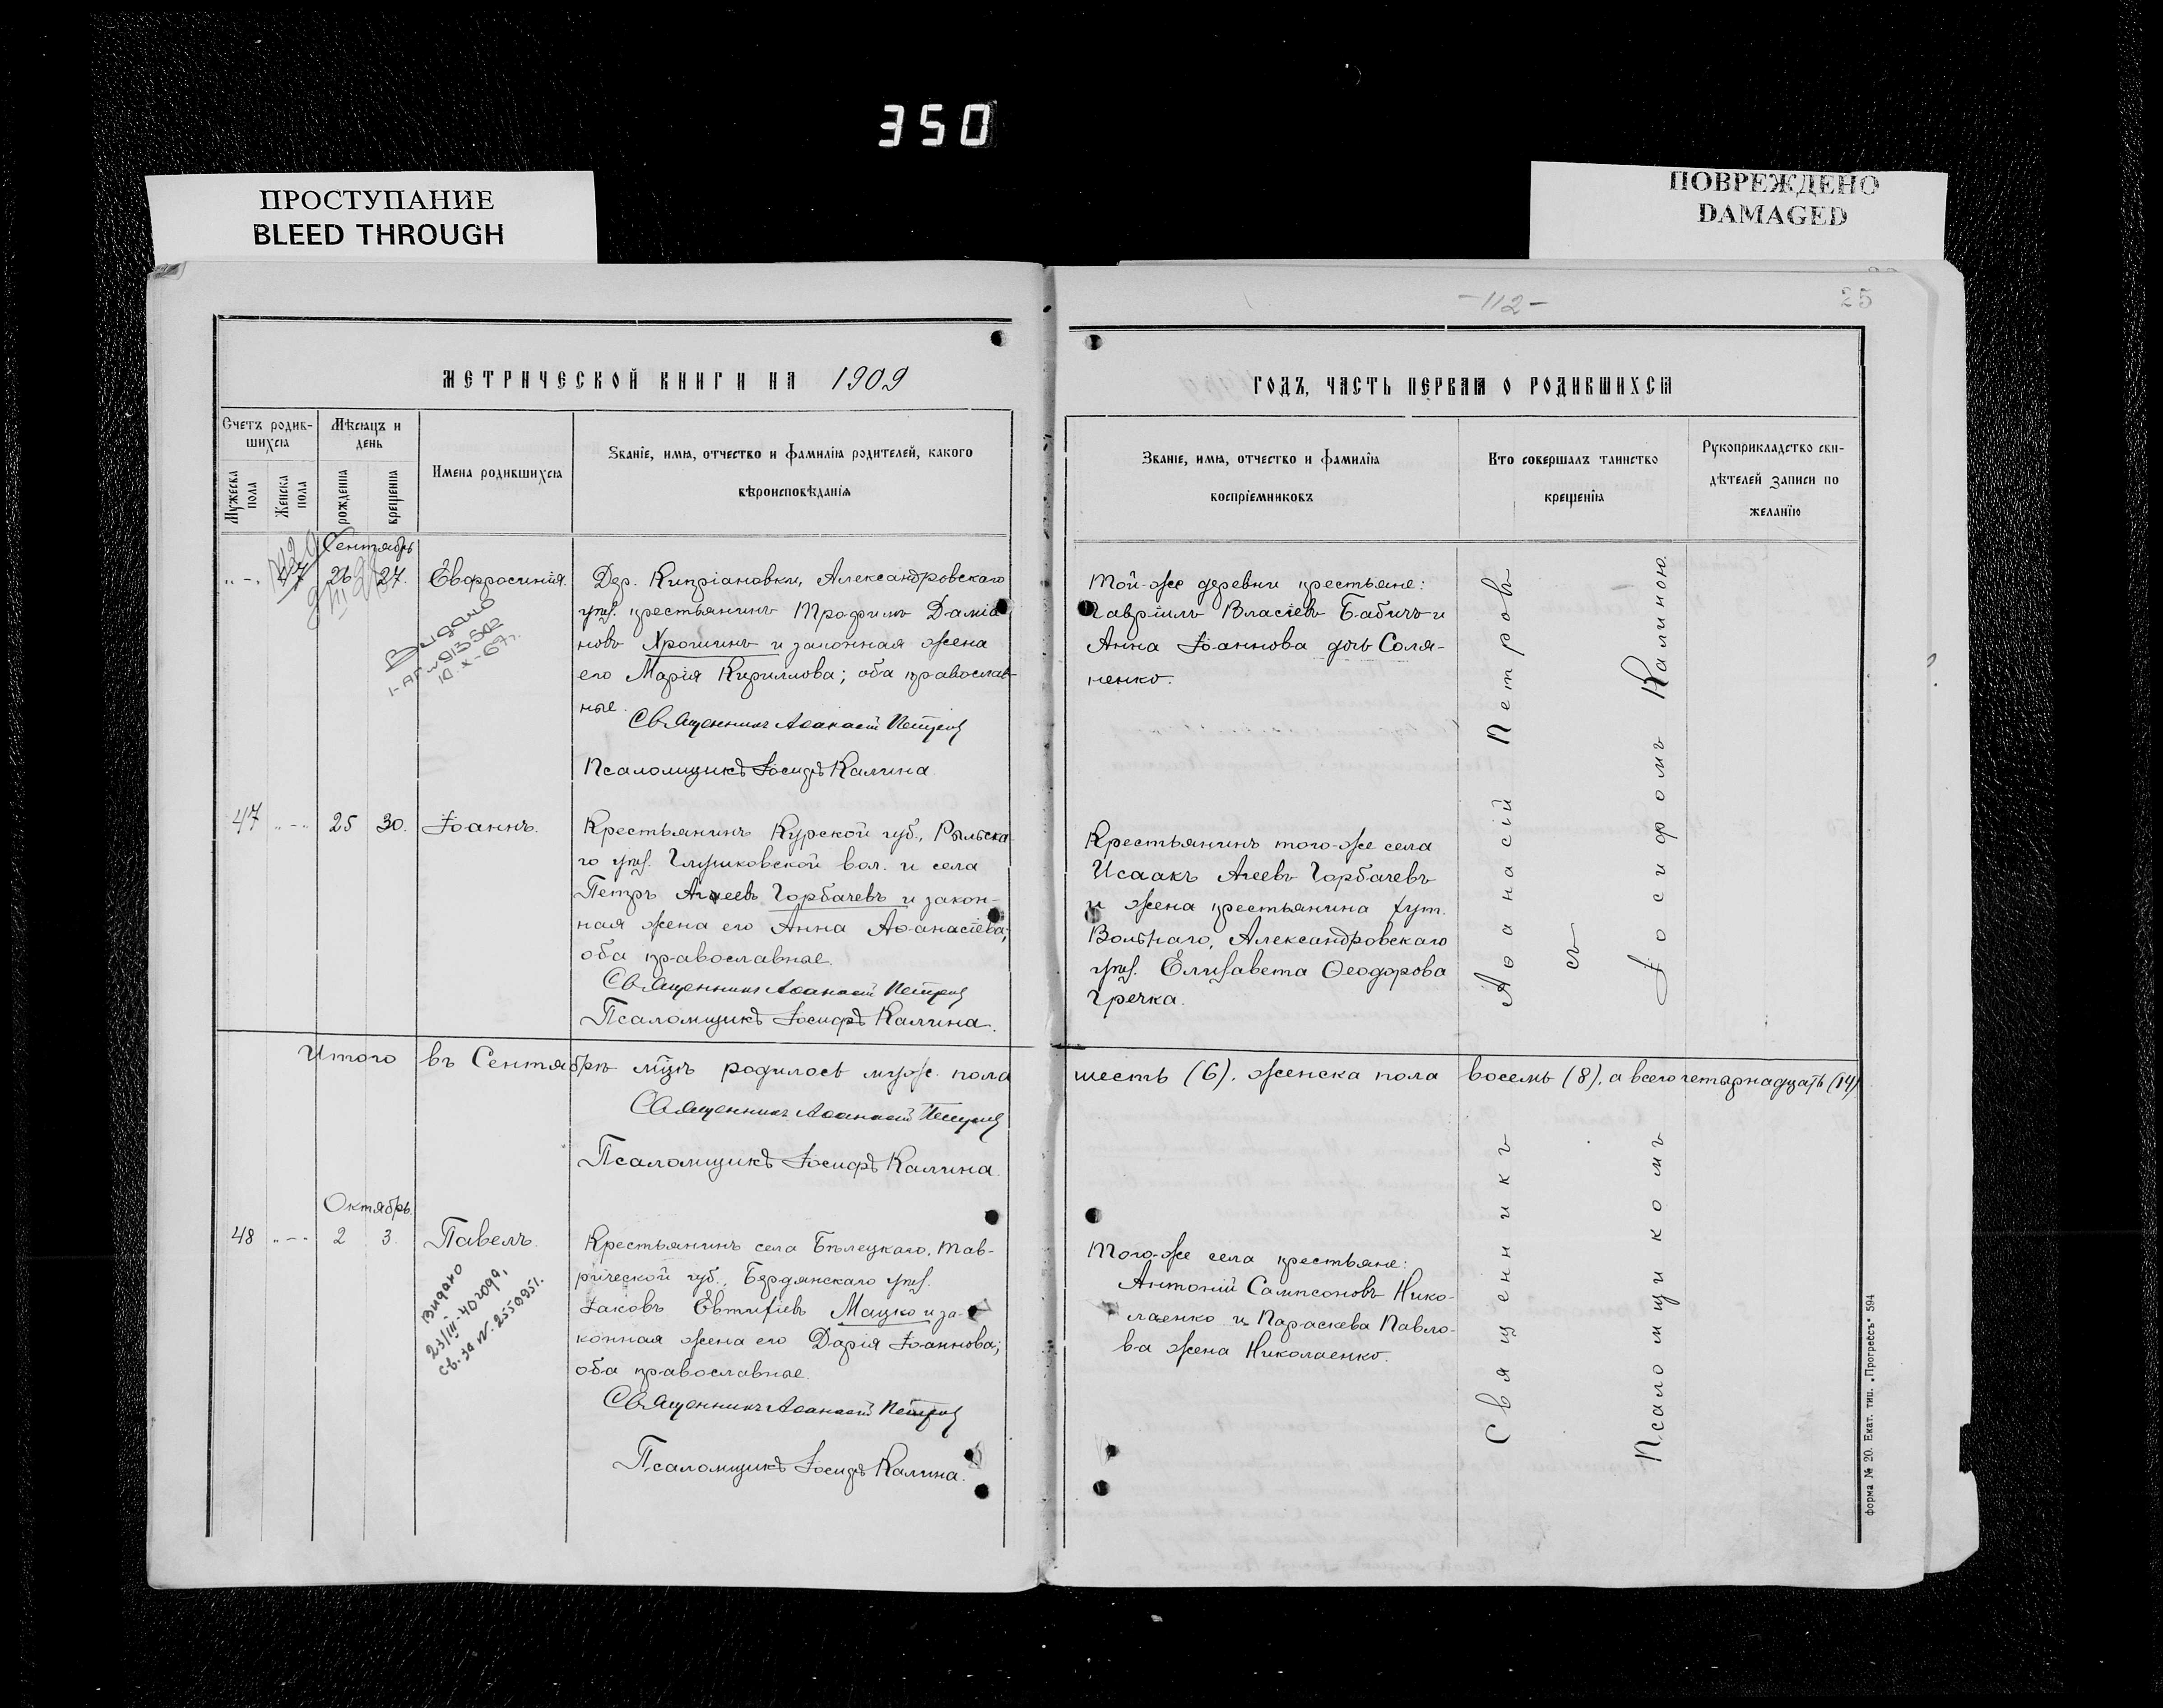 350
ПРОСТУПАНИЕ
BLEED THROUGH
ПОВРЕЖДЕНО
DAMAGED
-112-
25
МЕТРИЧЕСКОЙ КНИГИ НА 1909
ГОДЪ, ЧАСТЬ ПЕРВАЯ О РОДИВШИХСЯ
Счетъ родив-
шихся
Мужеска пола
Женска пола
Мѣсяцъ и
день
рожденія
крещенія
Имена родившихся
Званіе, имя, отчество и фамилія родителей, какого
вѣроисповѣданія
Званіе, имя, отчество и фамилія
воспріемниковъ
Кто совершалъ таинство
крещенія
Рукоприкладство сви-
дѣтелей записи по
желанію
Сентябрь
47 26 27. Евфросинія.
Видано
Дер. Кипріановки, Александровскаго
уѣз. крестьянинъ Трофимъ Даміа
новъ Хроминъ и законная жена
его Марія Кириллова; оба православ-
ные.
Священникъ Аѳанасій Петровъ
Псаломщикъ Іосифъ Калина.
Той-же деревни крестьяне:
Гавріилъ Власіевъ Бабичъ и
Анна Іоаннова дочь Соля-
ненко.
47 25 30. Іоаннъ.
Крестьянинъ Курской губ., Рыльска
го уѣз. Глушковской вол. и села
Петръ Агѵеевъ Горбачевъ и закон-
ная жена его Анна Аѳанасіева;
оба православные.
Священникъ Аѳанасій Петровъ
Псаломщикъ Іосифъ Калина.
Крестьянинъ того-же села
Исаакъ Агеевъ Горбачевъ
и жена крестьянина хут.
Вольнаго, Александровскаго
уѣз. Елизавета Ѳеодорова
Гречка.
Итого въ Сентябрѣ м̃цѣ родилось муж. пола шесть (6). женска пола восемь (8), а всего четырнадцать (14)
Священникъ Аѳанасій Петровъ
Псаломщикъ Іосифъ Калина.
Октябрь.
48 2 3. Павелъ.
Видано
23/III-40 года,
св. за №.
Крестьянинъ села Бѣлецкаго, Тав-
рической губ., Бердянскаго уѣз.
Іаковъ Евтихіевъ Мацко и за-
конная жена его Дарія Іоаннова;
оба православные.
Священникъ Аѳанасій Петровъ
Псаломщикъ Іосифъ Калина.
Того-же села крестьяне:
Антоній Сампсоновъ Нико-
лаенко и Параскева Павло-
ва жена Николаенко.
Священникъ Аѳанасій Петровъ
съ
Псаломщикомъ Іосифомъ Калиною.
Форма № 20. Екат. тип. „Прогрессъ" 594